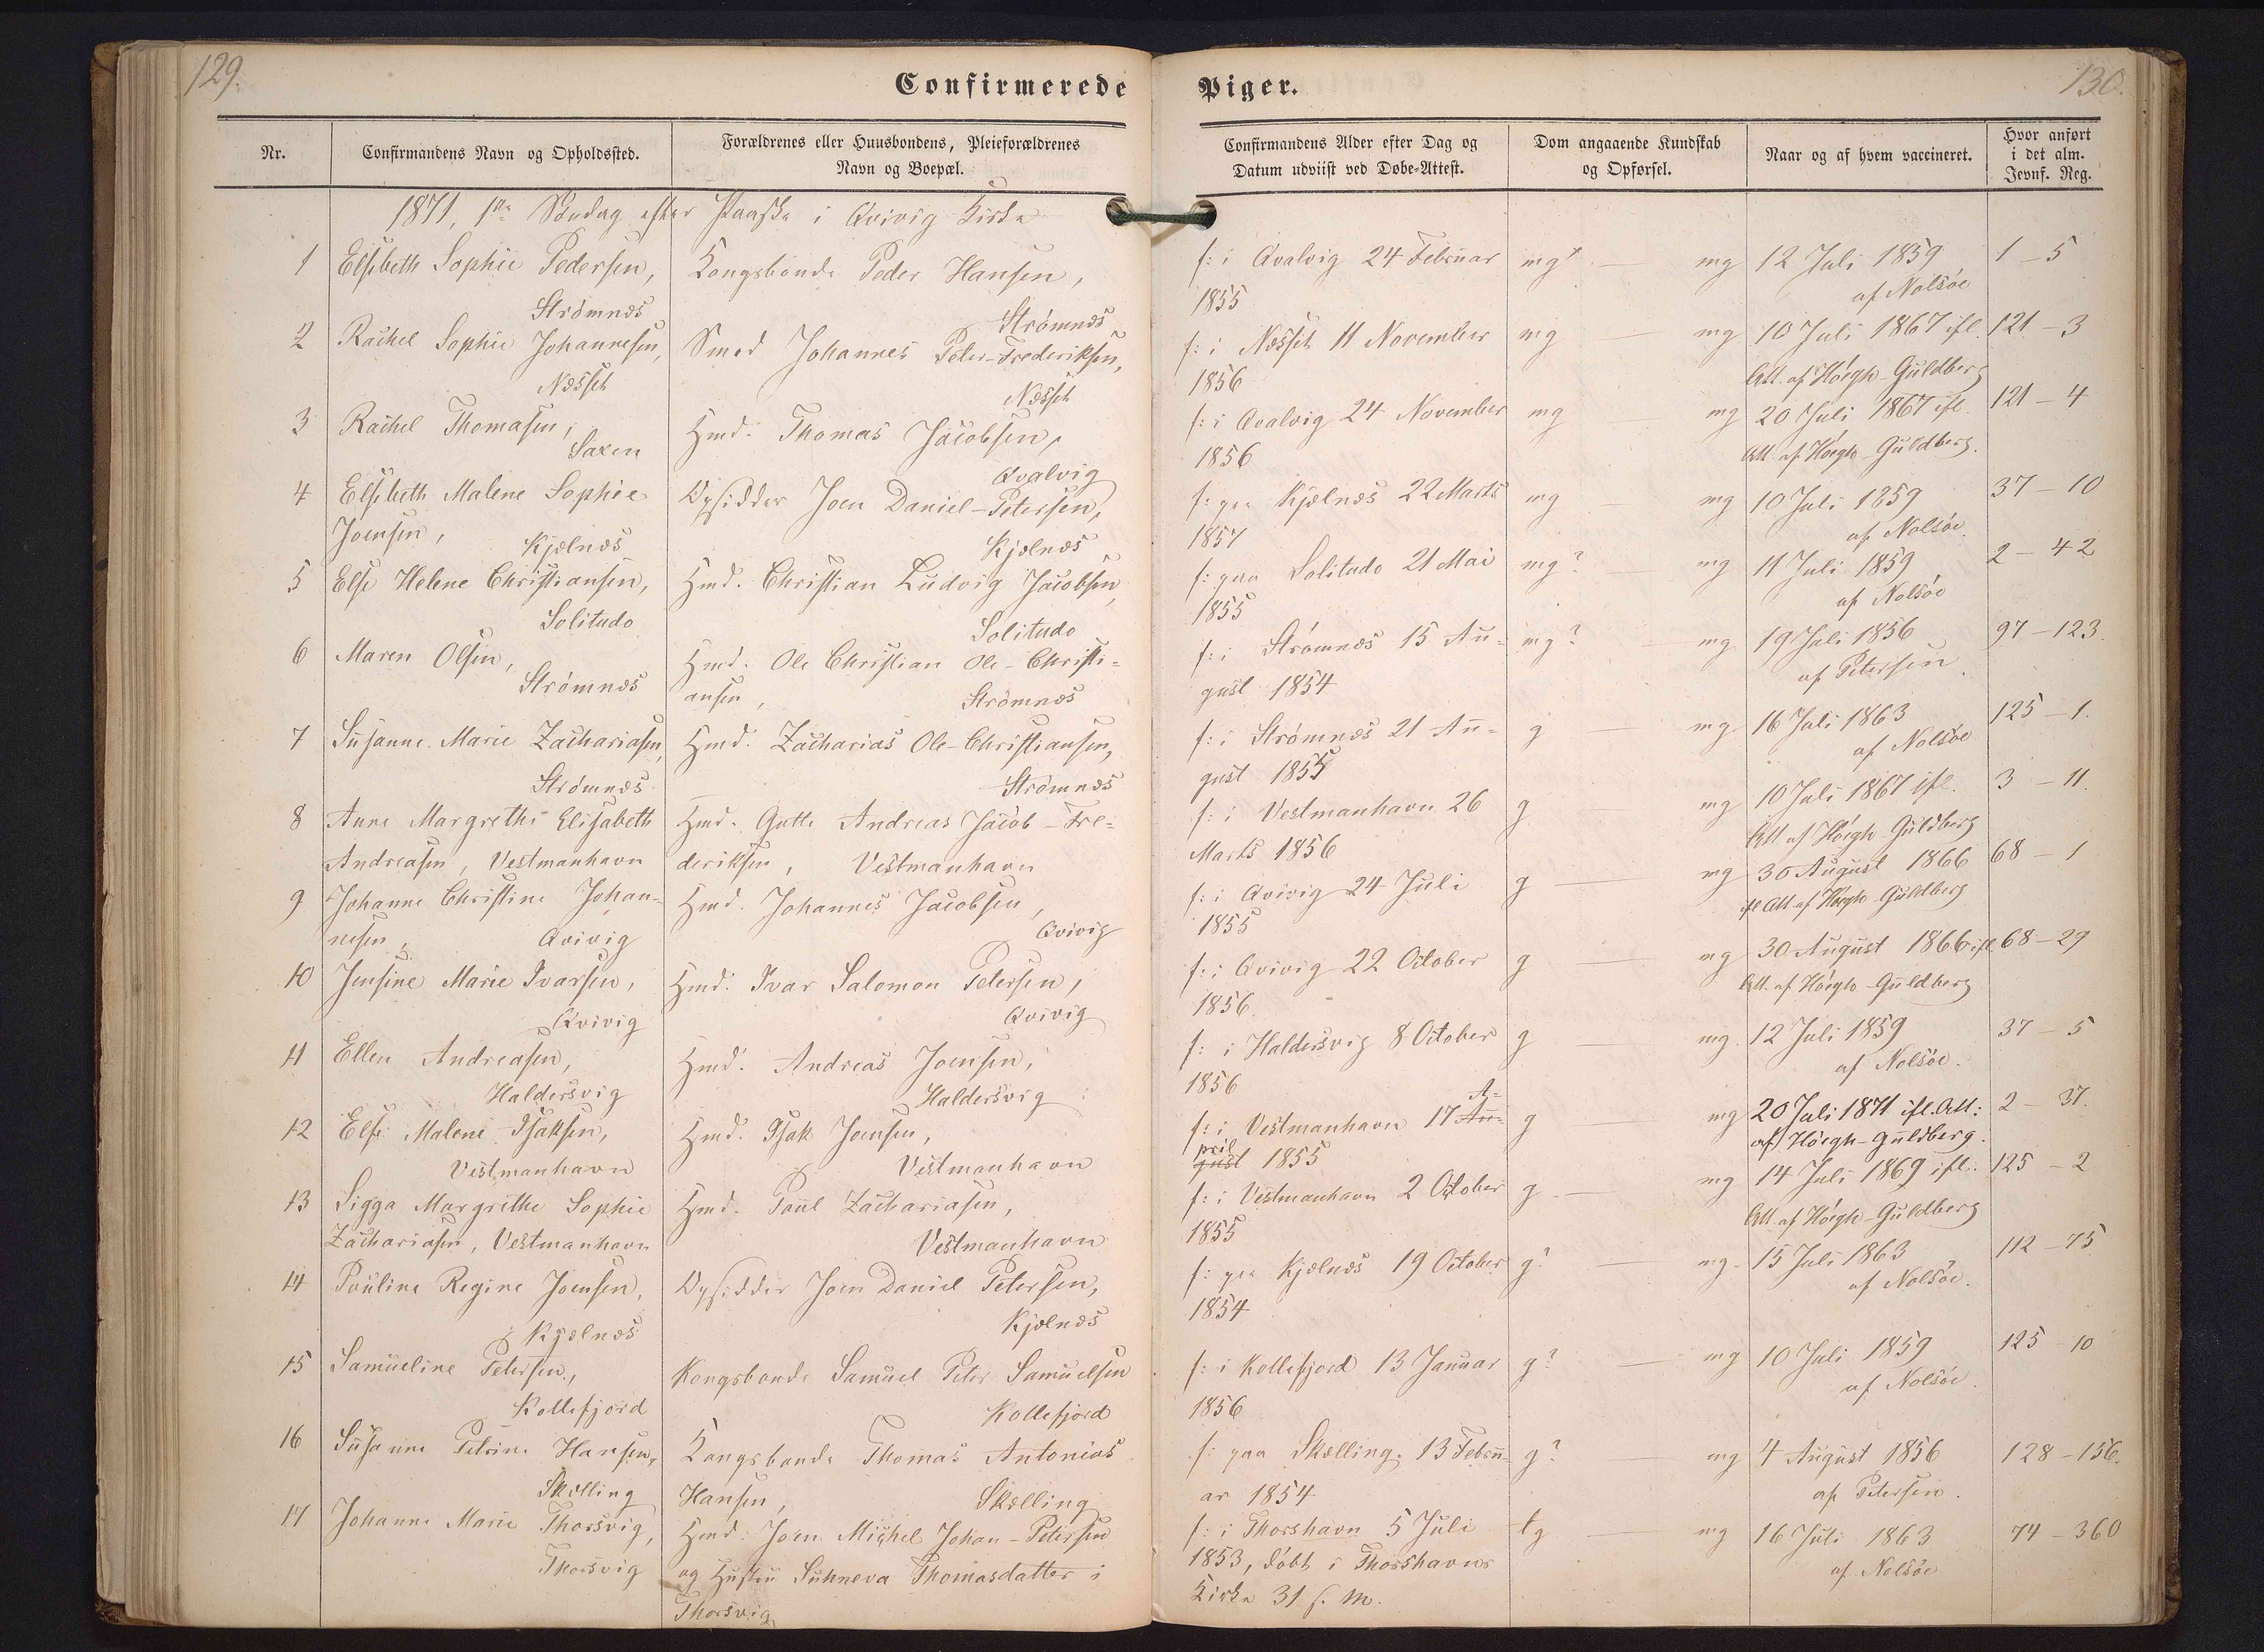 129.
130.
Confirmerede Piger.
Nr.
Confirmandens Navn og Opholdssted.
Forældrenes eller Huusbondens, Pleieforældrenes
Navn og Boepæl.
Confirmandens Alder efter Dag og
Datum udviist ved Døbe-Attest.
Dom angaaende Kundskab
og Opførsel.
Naar og af hvem vaccineret.
Hvor anført
i det alm.
Jevnf. Reg.
1871, 1ste Søndag efter Paaske i Qvivig Kirke
1 Elsebeth Sophie Pedersen, Kongsbonde Peder Hansen, f: i Qvalvig 24 Februar mg? — mg 12 Juli 1859 1 – 5
Strömnæs Strömnæs 1855 af Nolsöe
2 Rachel Sophie Johannesen, Smed Johannes Peter-Frederiksen, f: i Næsset 11 November mg — mg 10 Juli 1867 ifl. 121 – 3
Næsset Næsset 1856 Att. af Höegh-Guldberg
3 Rachel Thomasen, Hmd. Thomas Jacobsen, f: i Qvalvig 24 November mg — mg 20 Juli 1867 ifl. 121 – 4
Saxen Qvalvig 1856 Att. af Höegh-Guldberg.
4 Elsebeth Malene Sophie Opsidder Joen Daniel-Petersen, f: paa Kjælnæs 22 Marts mg — mg 10 Juli 1859 37 – 10
Joensen, Kjælnæs Kjælnæs 1857 af Nolsöe.
5 Else Helene Christiansen, Hmd. Christian Ludvig Jacobsen, f: paa Solitude 21 Mai mg? mg 11 Juli 1859 2 – 42
Solitude Solitude 1855 af Nolsöe
6 Maren Olsen, Hmd. Ole Christian Ole-Christi= f: i Strömnæs 15 Au= mg? mg 19 Juli 1856 97 – 123.
Strömnæs ansen, Strömnæs gust 1854 af Petersen.
7 Susanne Marie Zachariasen, Hmd. Zacharias Ole-Christiansen, f: i Strömnæs 21 Au= g — mg 16 Juli 1863 125 – 1.
Strömnæs Strömnæs gust 1855 af Nolsöe
8 Anne Margrethe Elisabeth Hmd. Gutte Andreas Jacob-Fre= f: i Vestmanhavn 26 g — mg 10 Juli 1867 ifl. 3 – 11.
Andreasen, Vestmanhavn deriksen, Vestmanhavn Marts 1856 Att af Höegh-Guldberg
9 Johanne Christine Johan= Hmd. Johannes Jacobsen, f: i Qvivig 24 Juli g — mg 30 August 1866 68 – 1
nesen, Qvivig Qvivig 1855 ifl Att af Höegh-Guldberg
10 Jensine Marie Ivarsen, Hmd. Ivar Salomon Petersen, f: i Qvivig 22 October g — mg 30 August 1866 ifl 68 – 29
Qvivig Qvivig 1856. Att. af Höegh-Guldberg
11 Ellen Andreasen, Hmd. Andreas Joensen, f: i Haldersvig 8 October g — mg. 12 Juli 1859 37 – 5
Haldersvig Haldersvig 1856 af Nolsöe.
12 Else Malene Isaksen, Hmd. Isak Joensen, f: i Vestmanhavn 17 Au= A= g — mg 20 Juli 1871 ifl. Att: 2 – 37.
Vestmanhavn Vestmanhavn gust pril 1855 af Höegh-Guldberg.
13 Sigga Margrethe Sophie Hmd. Poul Zachariasen, f: i Vestmanhavn 2 October g — mg 14 Juli 1869 ifl. 125 – 2
Zachariasen, Vestmanhavn Vestmanhavn 1855 Att af Höegh-Guldberg
14 Pouline Regine Joensen, Opsidder Joen Daniel Petersen, f: paa Kjælnæs 19 October g? — mg 15 Juli 1863 112 – 75
Kjælnæs Kjælnæs 1854 af Nolsöe.
15 Samueline Petersen, Kongsbonde Samuel Peter Samuelsen f: i Kollefjord 13 Januar g? — mg 10 Juli 1859 125 – 10
Kollefjord Kollefjord 1856 af Nolsöe.
16 Susanne Petrine Hansen, Kongsbonde Thomas Antonius f: paa Skælling 13 Febru= g? — mg 4 August 1856 128 – 156.
Skælling Hansen, Skælling ar 1854 af Petersen.
17 Johanne Marie Thorsvig, Hmd. Joen Michel Johan-Petersen f: i Thorshavn 5 Juli tg — mg 16 Juli 1863 74 – 360
Thorsvig og Hustru Suhneva Thomasdatter i 1853, döbt i Thorshavns af Nolsöe
Thorsvig Kirke 31 s. M.